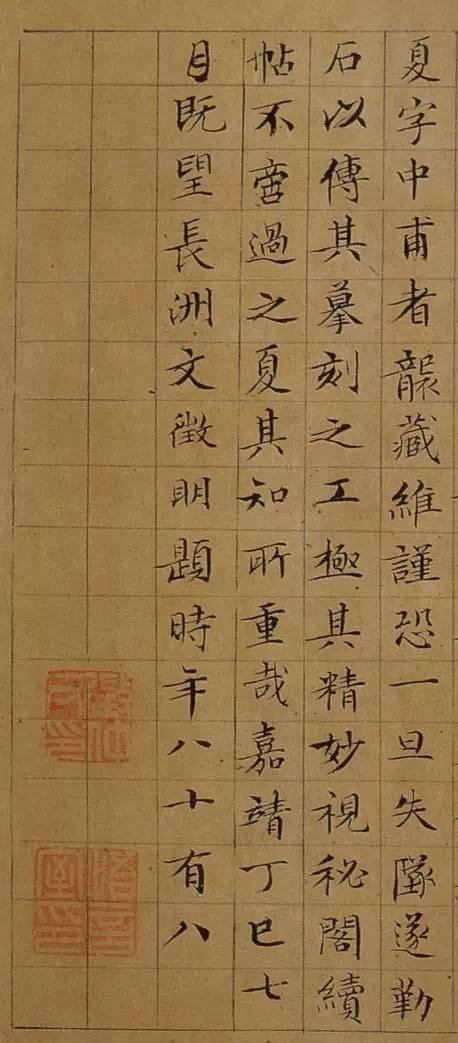 夏字中甫者襲藏維謹恐一旦失墜遂勒
石以傳其摹刻之工極其精妙視秘閣續
帖不啻過之夏其知所重哉嘉靖丁巳七
月既望長洲文徵明題時年八十有八
悟言室印